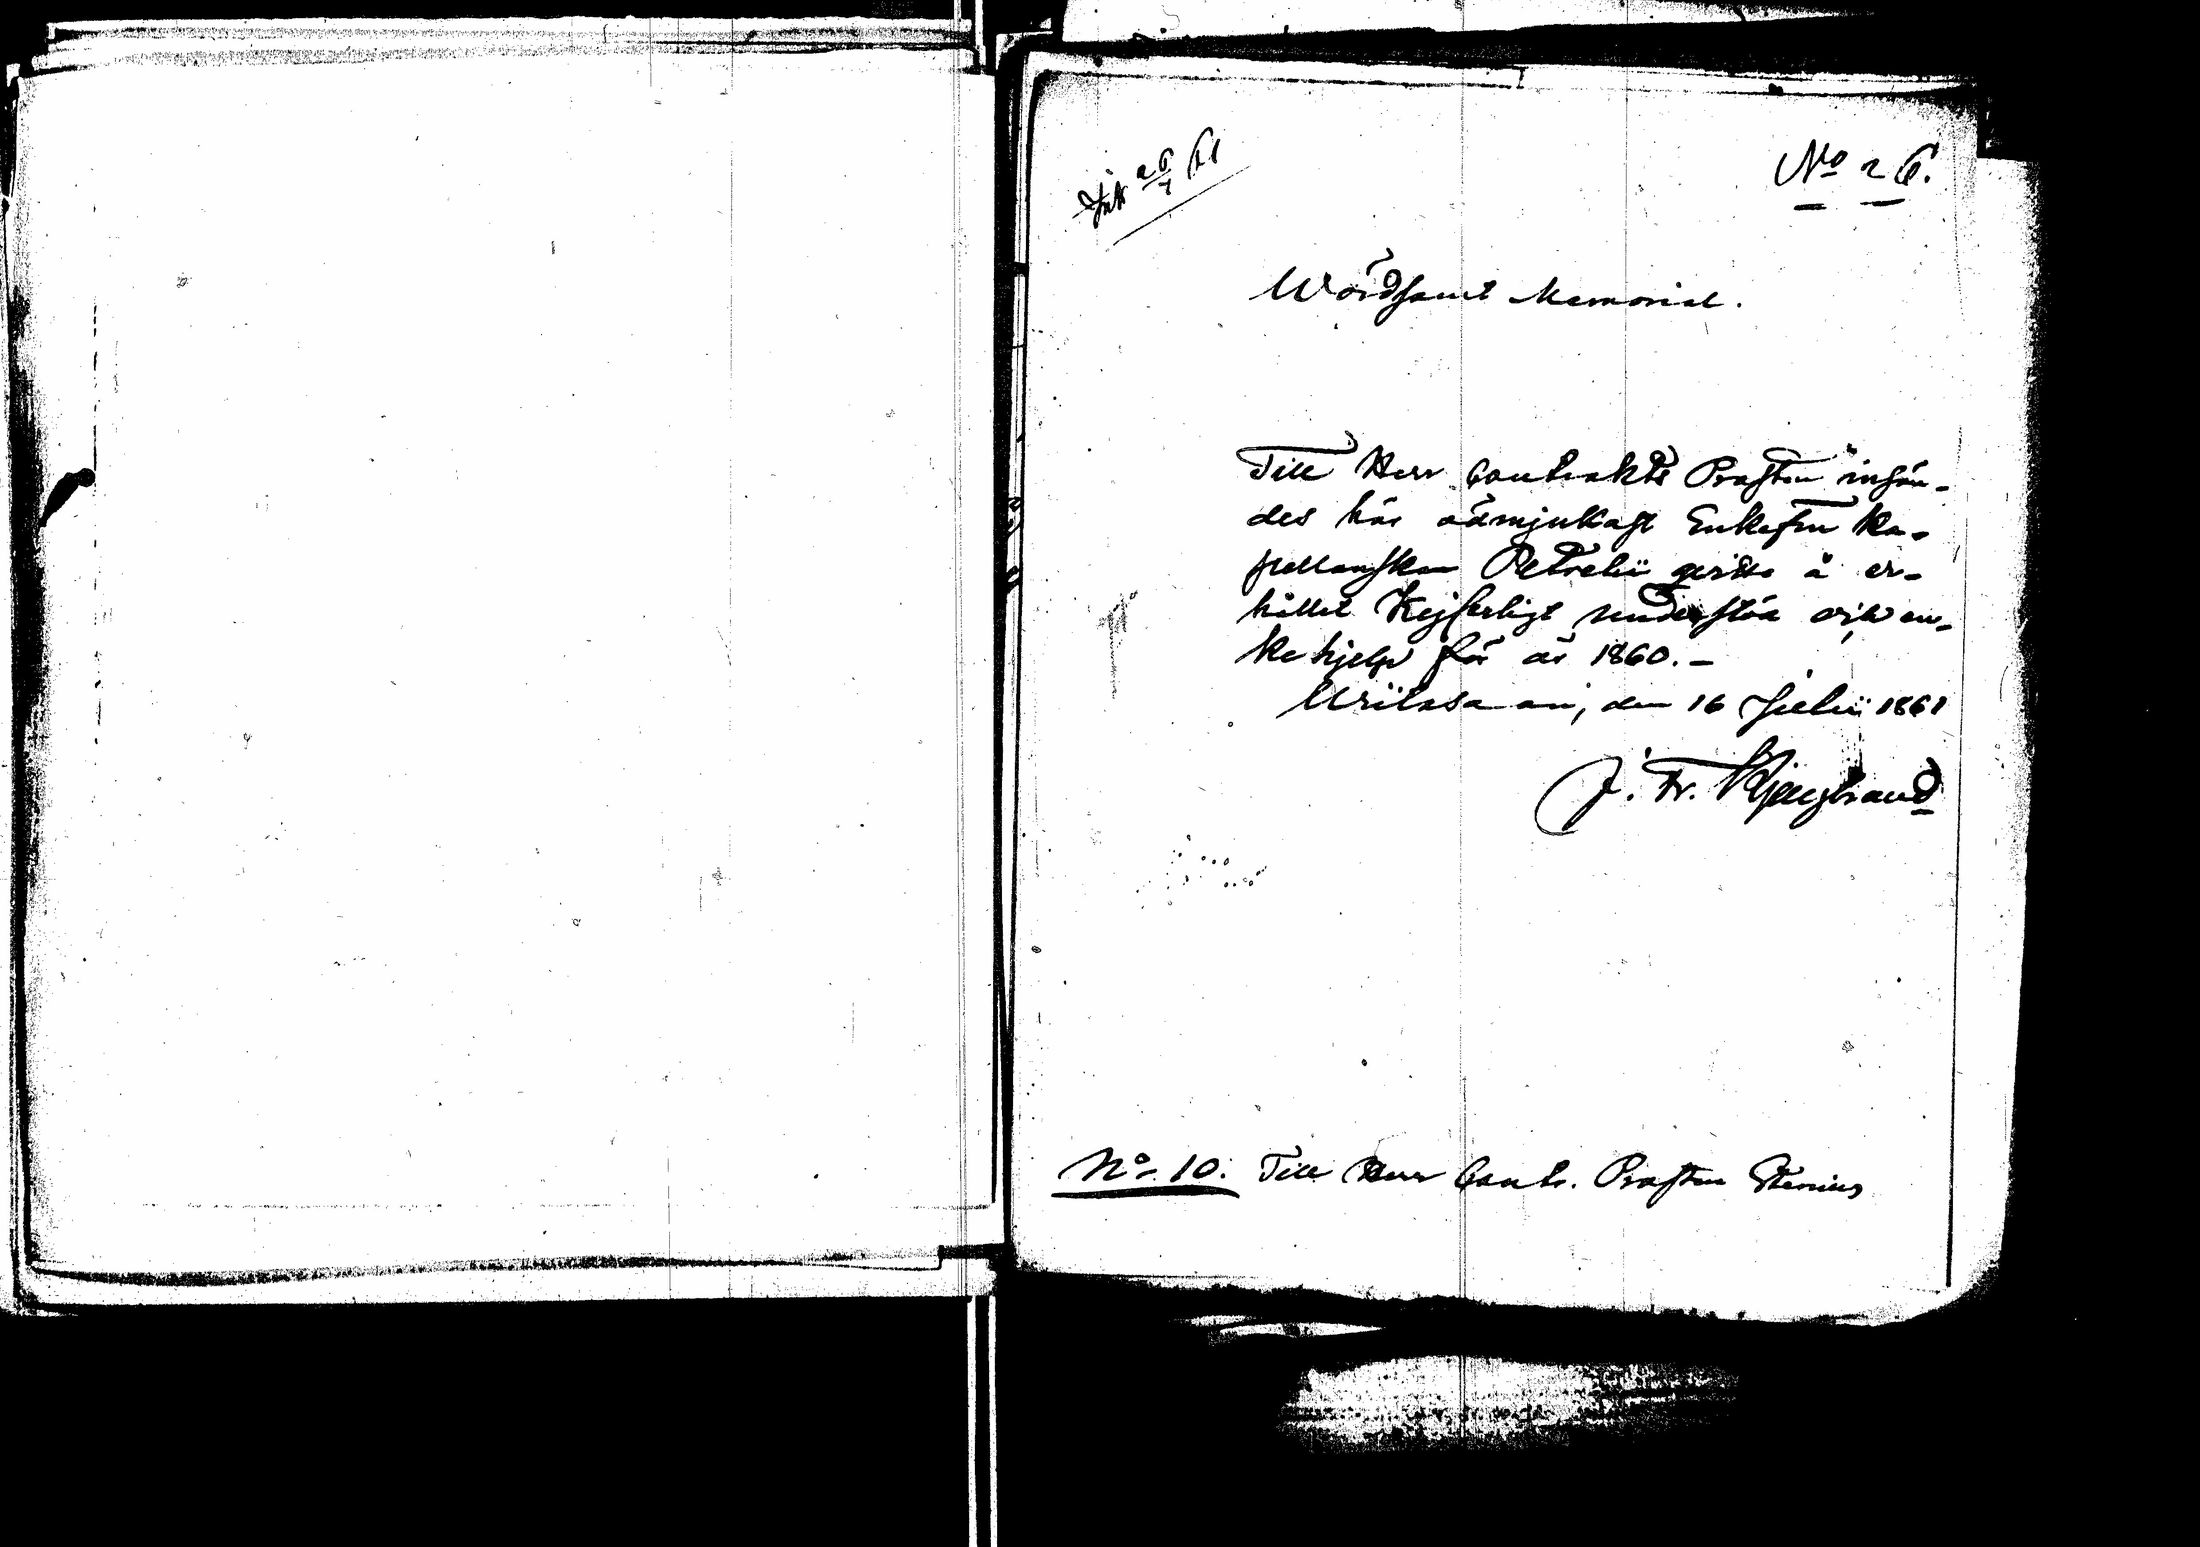 Ink 26/7 61
No 26.
Wördsamt Memorial.
Till Herr Contrakts Prosten insän-
des här ödmjukast Enkefru Ka-
pellanskan Petrelii qvitto å er-
hållet Kejserligt understöd och en-
kehjelp för år 1860.-
den 16 Julii 1861
J. Fr.
No 10. Till Herr Contr. Prosten Stenius